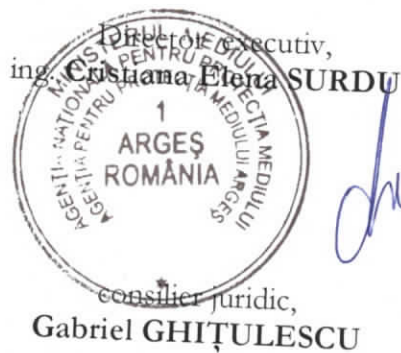 Director executiv,
ing. Cristiana Elena SURDU
MINISTERUL MEDIULUI
AGENȚIA NAȚIONALĂ PENTRU PROTECȚIA MEDIULUI
AGENȚIA PENTRU PROTECȚIA MEDIULUI ARGEȘ
1
ARGEȘ
ROMÂNIA
consilier juridic,
Gabriel GHIȚULESCU